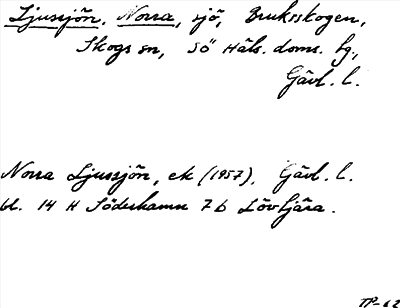 Ljussjön, Norra, sjö, Bruksskogen,
Skogs sn, Sö Häls. doms. tg.,
Gävl. l.
Norra Ljussjön, ek (1957), Gävl. l.
bl. 14 H Söderhamn 7 b Lövtjära.
TP-62